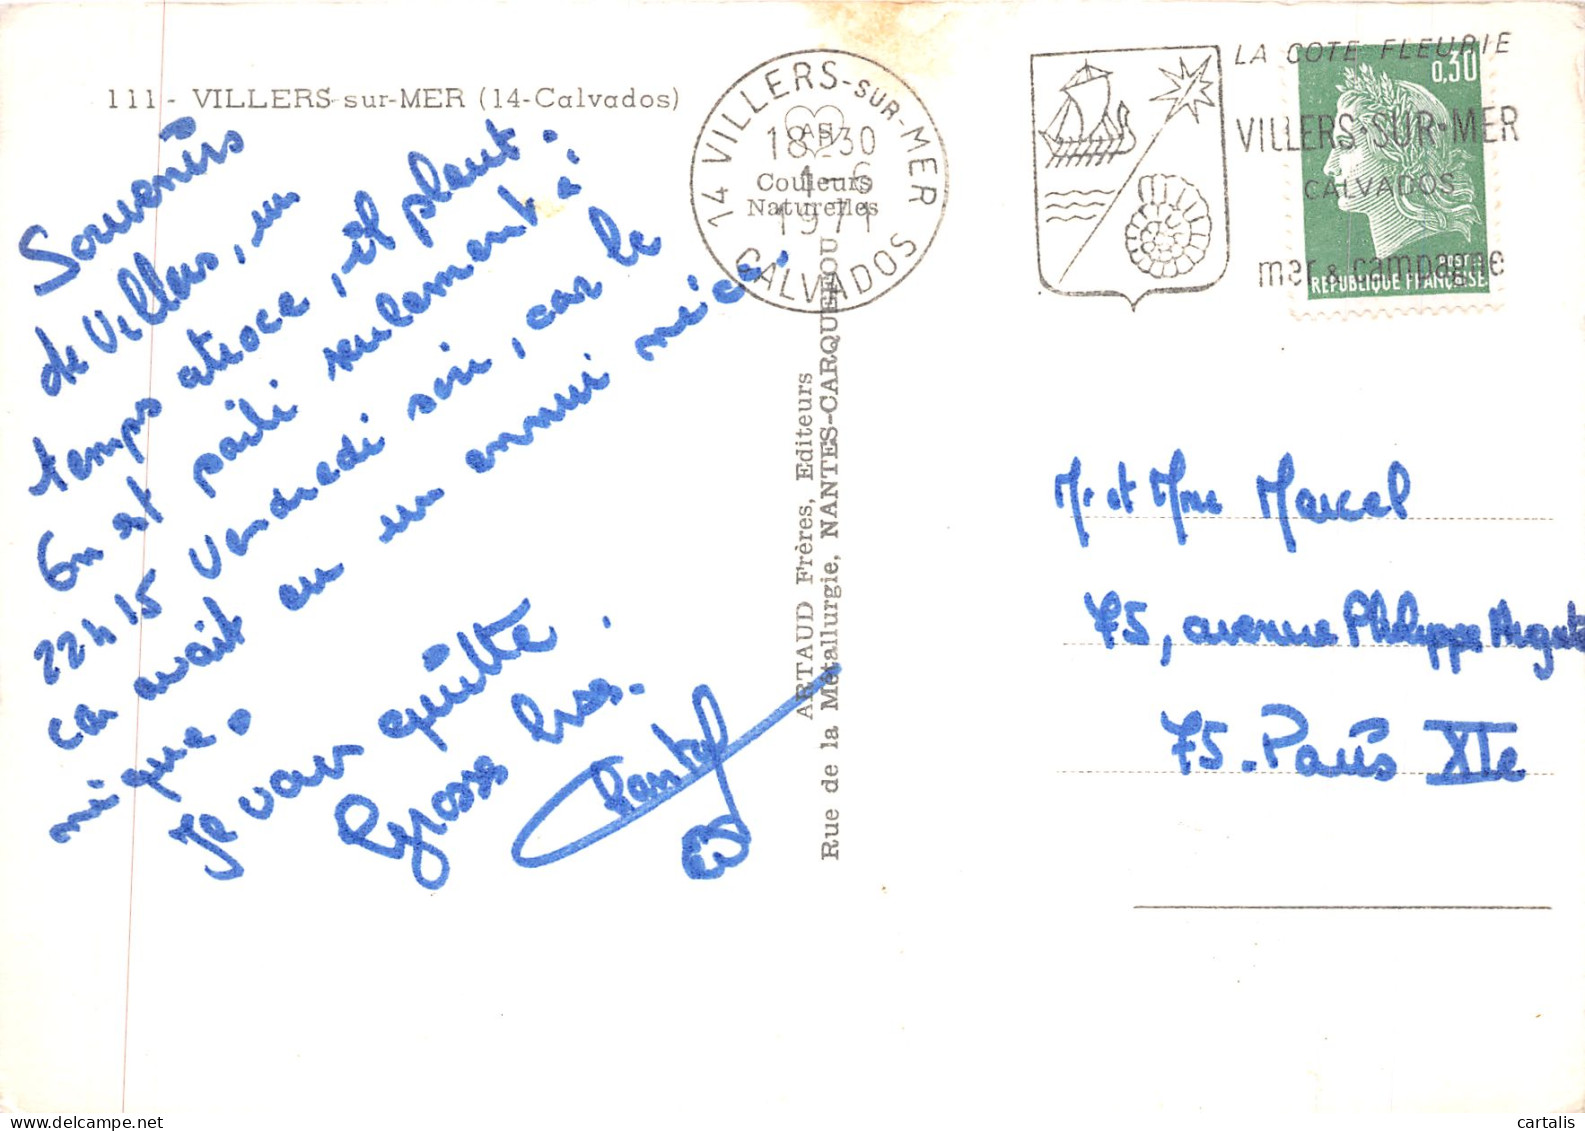 111 - VILLERS-sur-MER (14-Calvados)
Souvenirs
de Villers, un
temps atroce, il pleut.
On est parti seulement à
22h15 Vendredi soir, car le
car avait eu un ennui méca-
nique.
Je vous quitte.
Grosses bises.
Chantal
14 VILLERS-SUR-MER
18-30
1-6
1971
CALVADOS
Couleurs
Naturelles
LA COTE FLEURIE
VILLERS-SUR-MER
CALVADOS
mer & campagne
0,30
POSTES
REPUBLIQUE FRANÇAISE
ARTAUD Frères, Editeurs
Rue de la Métallurgie, NANTES-CARQUEFOU
Mr et Mme Marcel
75, avenue Philippe Auguste
75. Paris XIe
cartalis